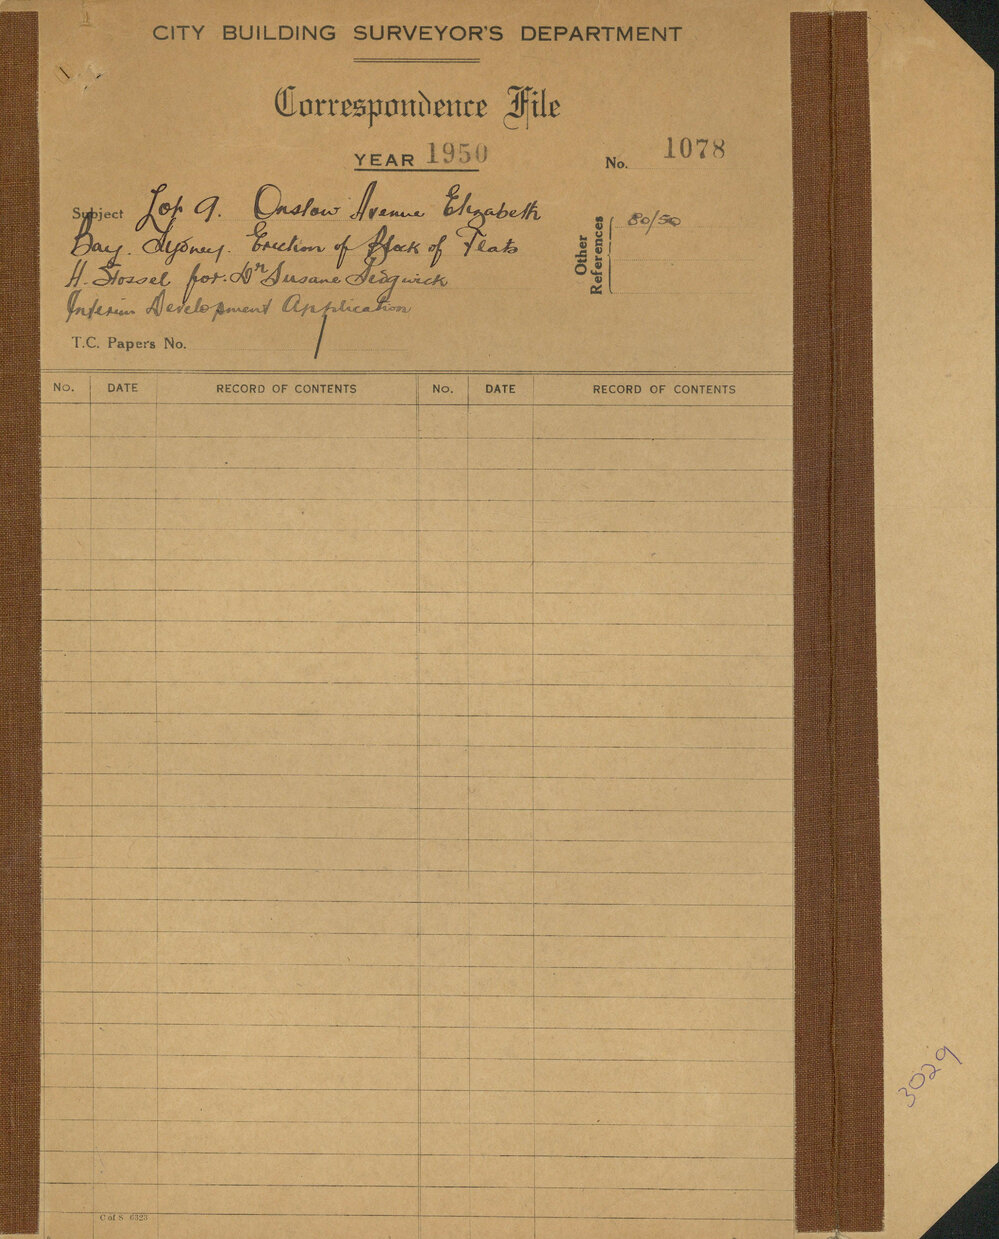 CITY BUILDING SURVEYOR'S DEPARTMENT
Correspondence File
YEAR 1950
No. 1078
Subject Lot 9. Onslow Avenue Elizabeth
Bay. Sydney. Erection of Block of Flats
H. Stossel for. Dr Susane Sedgwick
Interim Development Application
Other References 80/50
T.C. Papers No. /
No. DATE RECORD OF CONTENTS No. DATE RECORD OF CONTENTS
3029
C of S 6323